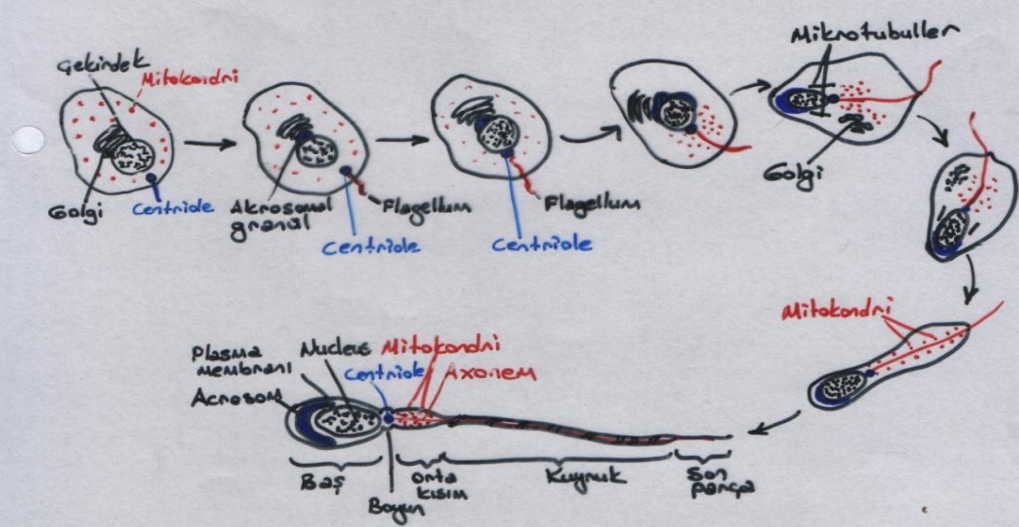 Çekirdek
Mitokondri
Golgi
Centriole
Akrosomal
granül
Flagellum
Centriole
Flagellum
Centriole
Mikrotubuller
Golgi
Mitokondri
Plasma
membranı
Nucleus
Mitokondri
Centriole
Axonem
Acrosom
Baş
Boyun
orta
kısım
Kuyruk
Son
parça